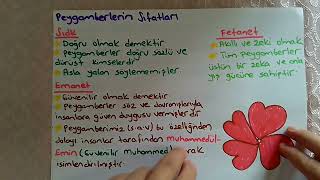 Peygamberlerin Sıfatları
Sıdk
Doğru olmak demektir
Peygamberler doğru sözlü ve
dürüst kimselerdir
Asla yalan söylememişler
Emanet
Güvenilir olmak demektir
Peygamberler söz ve davranışlarıyla
insanlara güven duygusu vermişlerdir
Peygamberimiz (s.a.v) bu özelliğinden
dolayı insanlar tarafından Muhammedü'l-
Emin (Güvenilir Muhammed) olarak
isimlendirilmiştir.
Fetanet
Akıllı ve zeki olmak
Tüm peygamberler
üstün bir zeka ve anla
yış gücüne sahiptir.